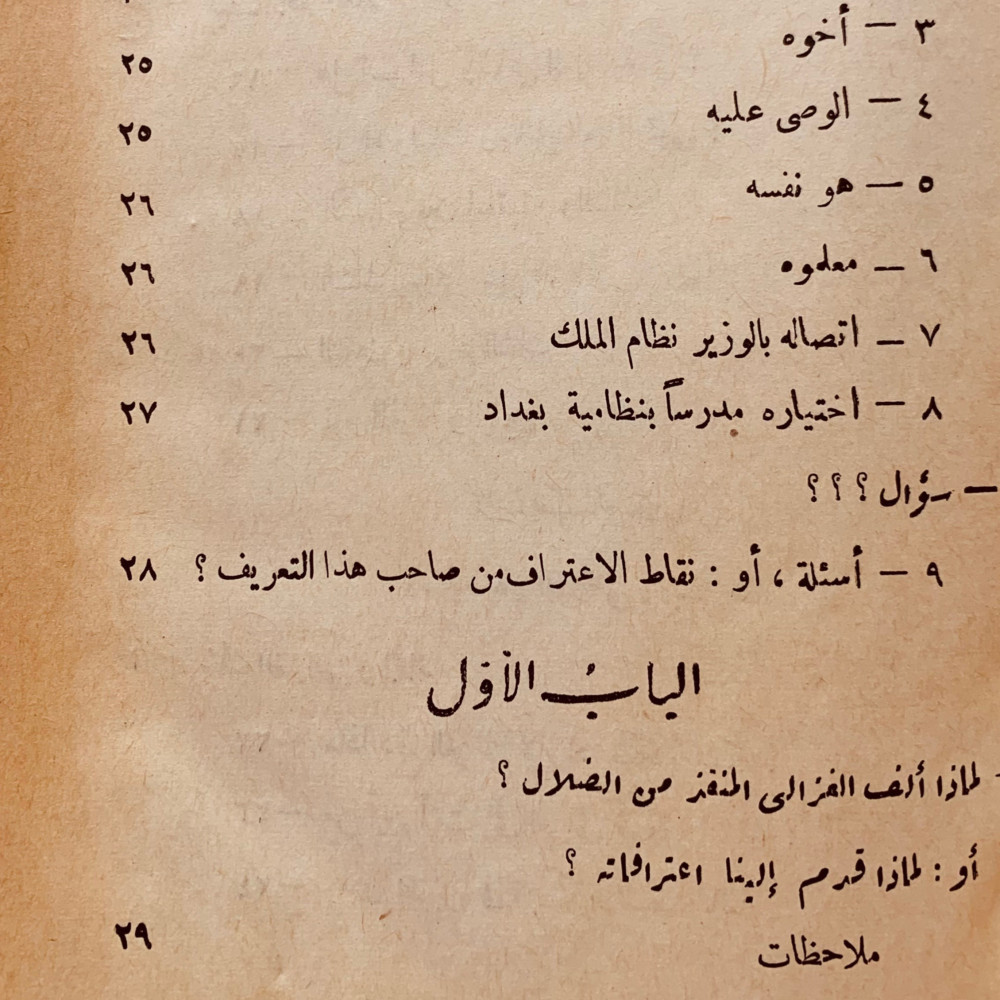 ٣ — أخوه ٢٥
٤ — الوصى عليه ٢٥
٥ — هو نفسه ٢٦
٦ — معلموه ٢٦
٧ — اتصاله بالوزير نظام الملك ٢٦
٨ — اختياره مدرساً بنظامية بغداد ٢٧
— سؤال ؟ ؟ ؟
٩ — أسئلة ، أو : نقاط الاعتراف من صاحب هذا التعريف ؟ ٢٨
البابُ الأوّل
لماذا ألف الغزالى المنقذ من الضلال ؟
أو : لماذا قدم إلينا اعترافاته ؟
ملاحظات ٢٩